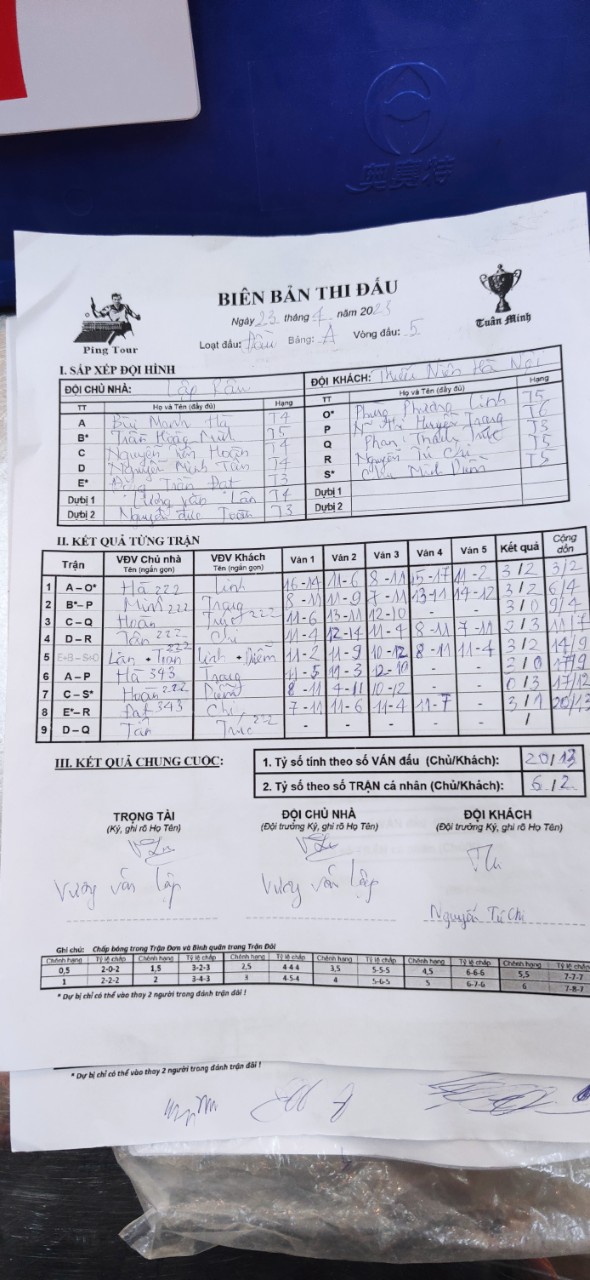 奥赛特
BIÊN BẢN THI ĐẤU
Ngày 23 tháng 4 năm 2023
Loạt đấu: Bảng: A Vòng đấu: 5
Ping Tour
Tuấn Minh
I. SẮP XẾP ĐỘI HÌNH
ĐỘI CHỦ NHÀ: ĐỘI KHÁCH: Thiếu Niên Hà Nội
TT Họ và Tên (đầy đủ) Hạng TT Họ và Tên (đầy đủ) Hạng
A Bùi Mạnh Hà T4 O* Phùng Phương Linh T5
B* Trần Hoàng Minh T5 P Ng Thị Huyền Trang T6
C Nguyễn Tiến Hoàn T4 Q Phan Thanh Trúc T5
D Nguyễn Minh Tân T4 R Nguyễn Tú Chi T5
E* Trần Đạt T3 S* Minh T5
Dự bị 1 Lân T4 Dự bị 1
Dự bị 2 Nguyễn Đức T3 Dự bị 2
II. KẾT QUẢ TỪNG TRẬN
Trận VĐV Chủ nhà Tên (ngắn gọn) VĐV Khách Tên (ngắn gọn) Ván 1 Ván 2 Ván 3 Ván 4 Ván 5 Kết quả Cộng dồn
1 A – O* Hà 222 Linh 16-14 11-6 8-11 15-17 11-2 3/2 3/2
2 B* – P Minh 222 Trang 8-11 11-9 7-11 13-11 14-12 3/2 6/4
3 C – Q Hoàn Trúc 222 11-6 13-11 12-10 - - 3/0 9/4
4 D – R Tân 222 Chi 11-4 12-14 11-4 8-11 7-11 2/3 11/7
5 E+B – S+O Lân + Trần Linh + Diễm 11-2 11-9 10-12 8-11 11-4 3/2 14/9
6 A – P Hà 343 Trang 11-5 11-3 12-10 - - 17/9
7 C – S* Hoàn 222 8-11 4-11 10-12 - - 0/3 17/12
8 E* – R Đạt 343 Chi 7-11 11-6 11-4 11-7 - 3/1 20/13
9 D – Q Tân Trúc 222 - - - - - /
III. KẾT QUẢ CHUNG CUỘC:
1. Tỷ số tính theo số VÁN đấu (Chủ/Khách): 20/13
2. Tỷ số theo số TRẬN cá nhân (Chủ/Khách): 6/2
TRỌNG TÀI ĐỘI CHỦ NHÀ ĐỘI KHÁCH
(Ký, ghi rõ Họ Tên) (Đội trưởng Ký, ghi rõ Họ Tên) (Đội trưởng Ký, ghi rõ Họ Tên)
Vương Văn Lập Vương Văn Lập Nguyễn Tú Chi
Ghi chú: Chấp bóng trong Trận Đơn và Bình quân trong Trận Đôi
Chênh hạng Tỷ lệ chấp Chênh hạng Tỷ lệ chấp Chênh hạng Tỷ lệ chấp Chênh hạng Tỷ lệ chấp Chênh hạng Tỷ lệ chấp Chênh hạng Tỷ lệ chấp
0,5 2-0-2 1,5 3-2-3 2,5 4-4-4 3,5 5-5-5 4,5 6-6-6 5,5 7-7-7
1 2-2-2 2 3-4-3 3 4-5-4 4 5-6-5 5 6-7-6 6 7-8-7
* Dự bị chỉ có thể vào thay 2 người trong đánh trận đôi !
* Dự bị chỉ có thể vào thay 2 người trong đánh trận đôi !